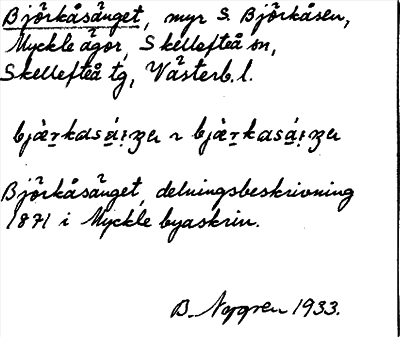 Björkåsänget, myr S. Björkåsen,
Myckle ägor, Skellefteå sn,
Skellefteå tg, Västerb. l.
Björkåsänget, delningsbeskrivning
1871 i Myckle byaskrin.
B. Nygren 1933.